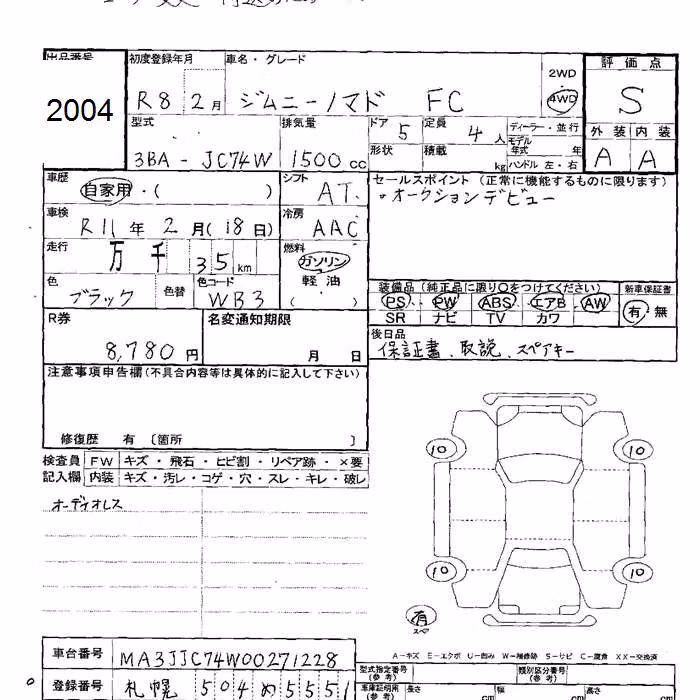 出品番号
2004
初度登録年月
R8 2月
車名・グレード
ジムニーノマド FC
2WD
4WD
評価点
S
外装 内装
A A
型式
3BA - JC74W
排気量
1500 cc
ドア 5
形状
定員 4 人
積載 kg
ディーラー・並行
モデル年式 年
ハンドル 左・右
車歴
自家用・( )
シフト
AT
セールスポイント (正常に機能するものに限ります)
・オークションデビュー
車検
R11 年 2 月 (18 日)
冷房
AAC
走行
万 千 35 km
燃料
ガソリン
軽油
( )
色
ブラック
色替
色コード
WB3
装備品 (純正品に限り○をつけてください)
PS PW ABS エアB AW
SR ナビ TV カワ
新車保証書
有・無
R券
8,780 円
名変通知期限
月 日
後日品
保証書、取説、スペアキー
注意事項申告欄(不具合内容等は具体的に記入して下さい)
修復歴 有 〔箇所 〕
検査員記入欄
FW キズ・飛石・ヒビ割・リペア跡・×要
内装 キズ・汚レ・コゲ・穴・スレ・キレ・破レ
オーディオレス
10 10
10 10
有
スペ
A－キズ E－エクボ U－凹み W－補修跡 S－サビ C－腐食 XX－交換済
車台番号 MA3JJC74W00271228
登録番号 札幌 504 め 5551
型式指定番号(参考)
類別区分番号(参考)
車庫証明用(参考) 長さ cm 幅 cm 高さ cm